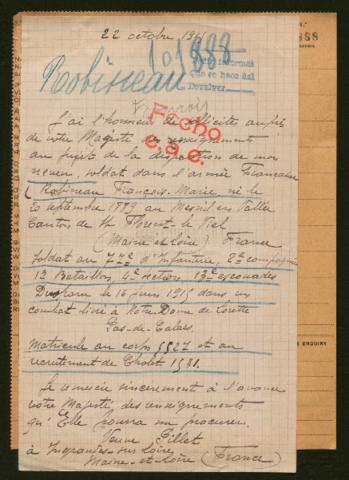 22 octobre 191
101888
Robineau
Fecho
e.a.e.
J'ai l'honneur de solliciter auprès
de votre Majesté des renseignements
au sujet de la disparition de mon
neveu, soldat dans l'armée Française
Robineau François-Marie né le
20 septembre 1889 au Mesnil en Vallée
Canton de St Florent-le Vieil
(Maine et Loire) France
soldat au 77e d'Infanterie, 2e compagnie
1e Bataillon, 4e section 13e escouades
Disparu le 16 juin 1915 dans un
combat livré à Notre Dame de Lorette
Pas-de-Calais.
Matricule au corps 5527 et au
recrutement de Cholet 1581.
Je remercie sincèrement à l'avance
votre Majesté, des renseignements
qu'Elle pourra me procurer.
Veuve Pillet
à Ingrandes sur Loire,
Maine-et-Loire (France)
888
ENQUIRY